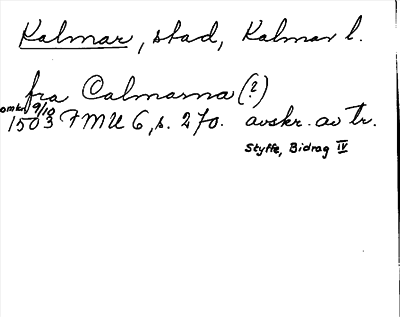 Kalmar, stad, Kalmar l.
fra Calmarna (?)
omkr 9/10
1503 FMU 6, s. 270. avskr. av tr.
Styffe, Bidrag IV